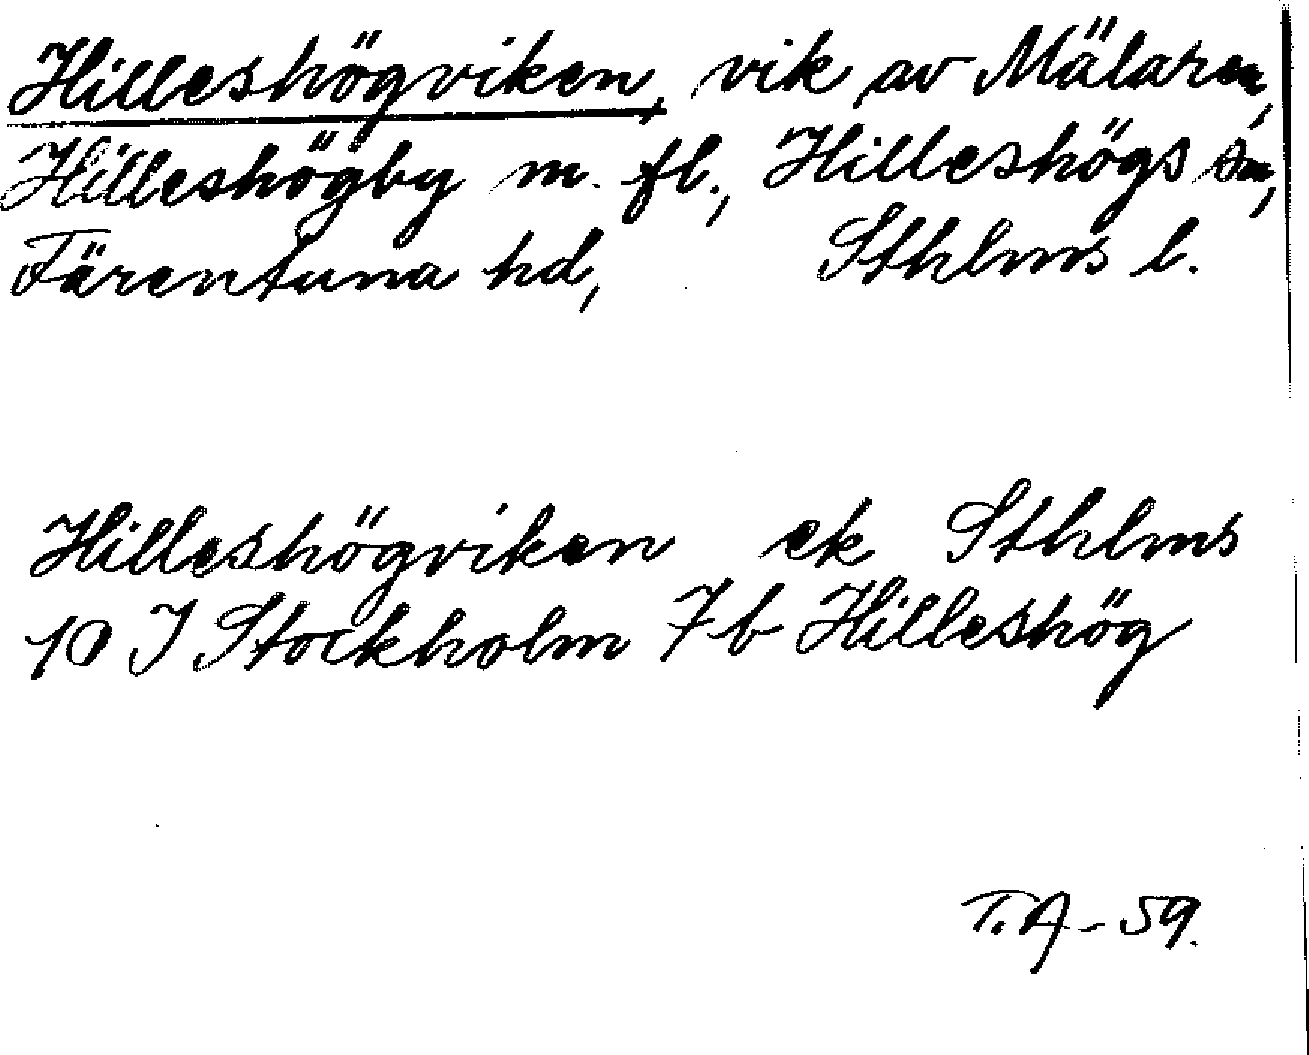 Hilleshögviken, vik av Mälaren,
Hilleshögby m. fl., Hilleshögs sn,
Färentuna hd, Sthlms l.
Hilleshögviken ek Sthlms
10 I Stockholm 7b Hilleshög
T.A-59.